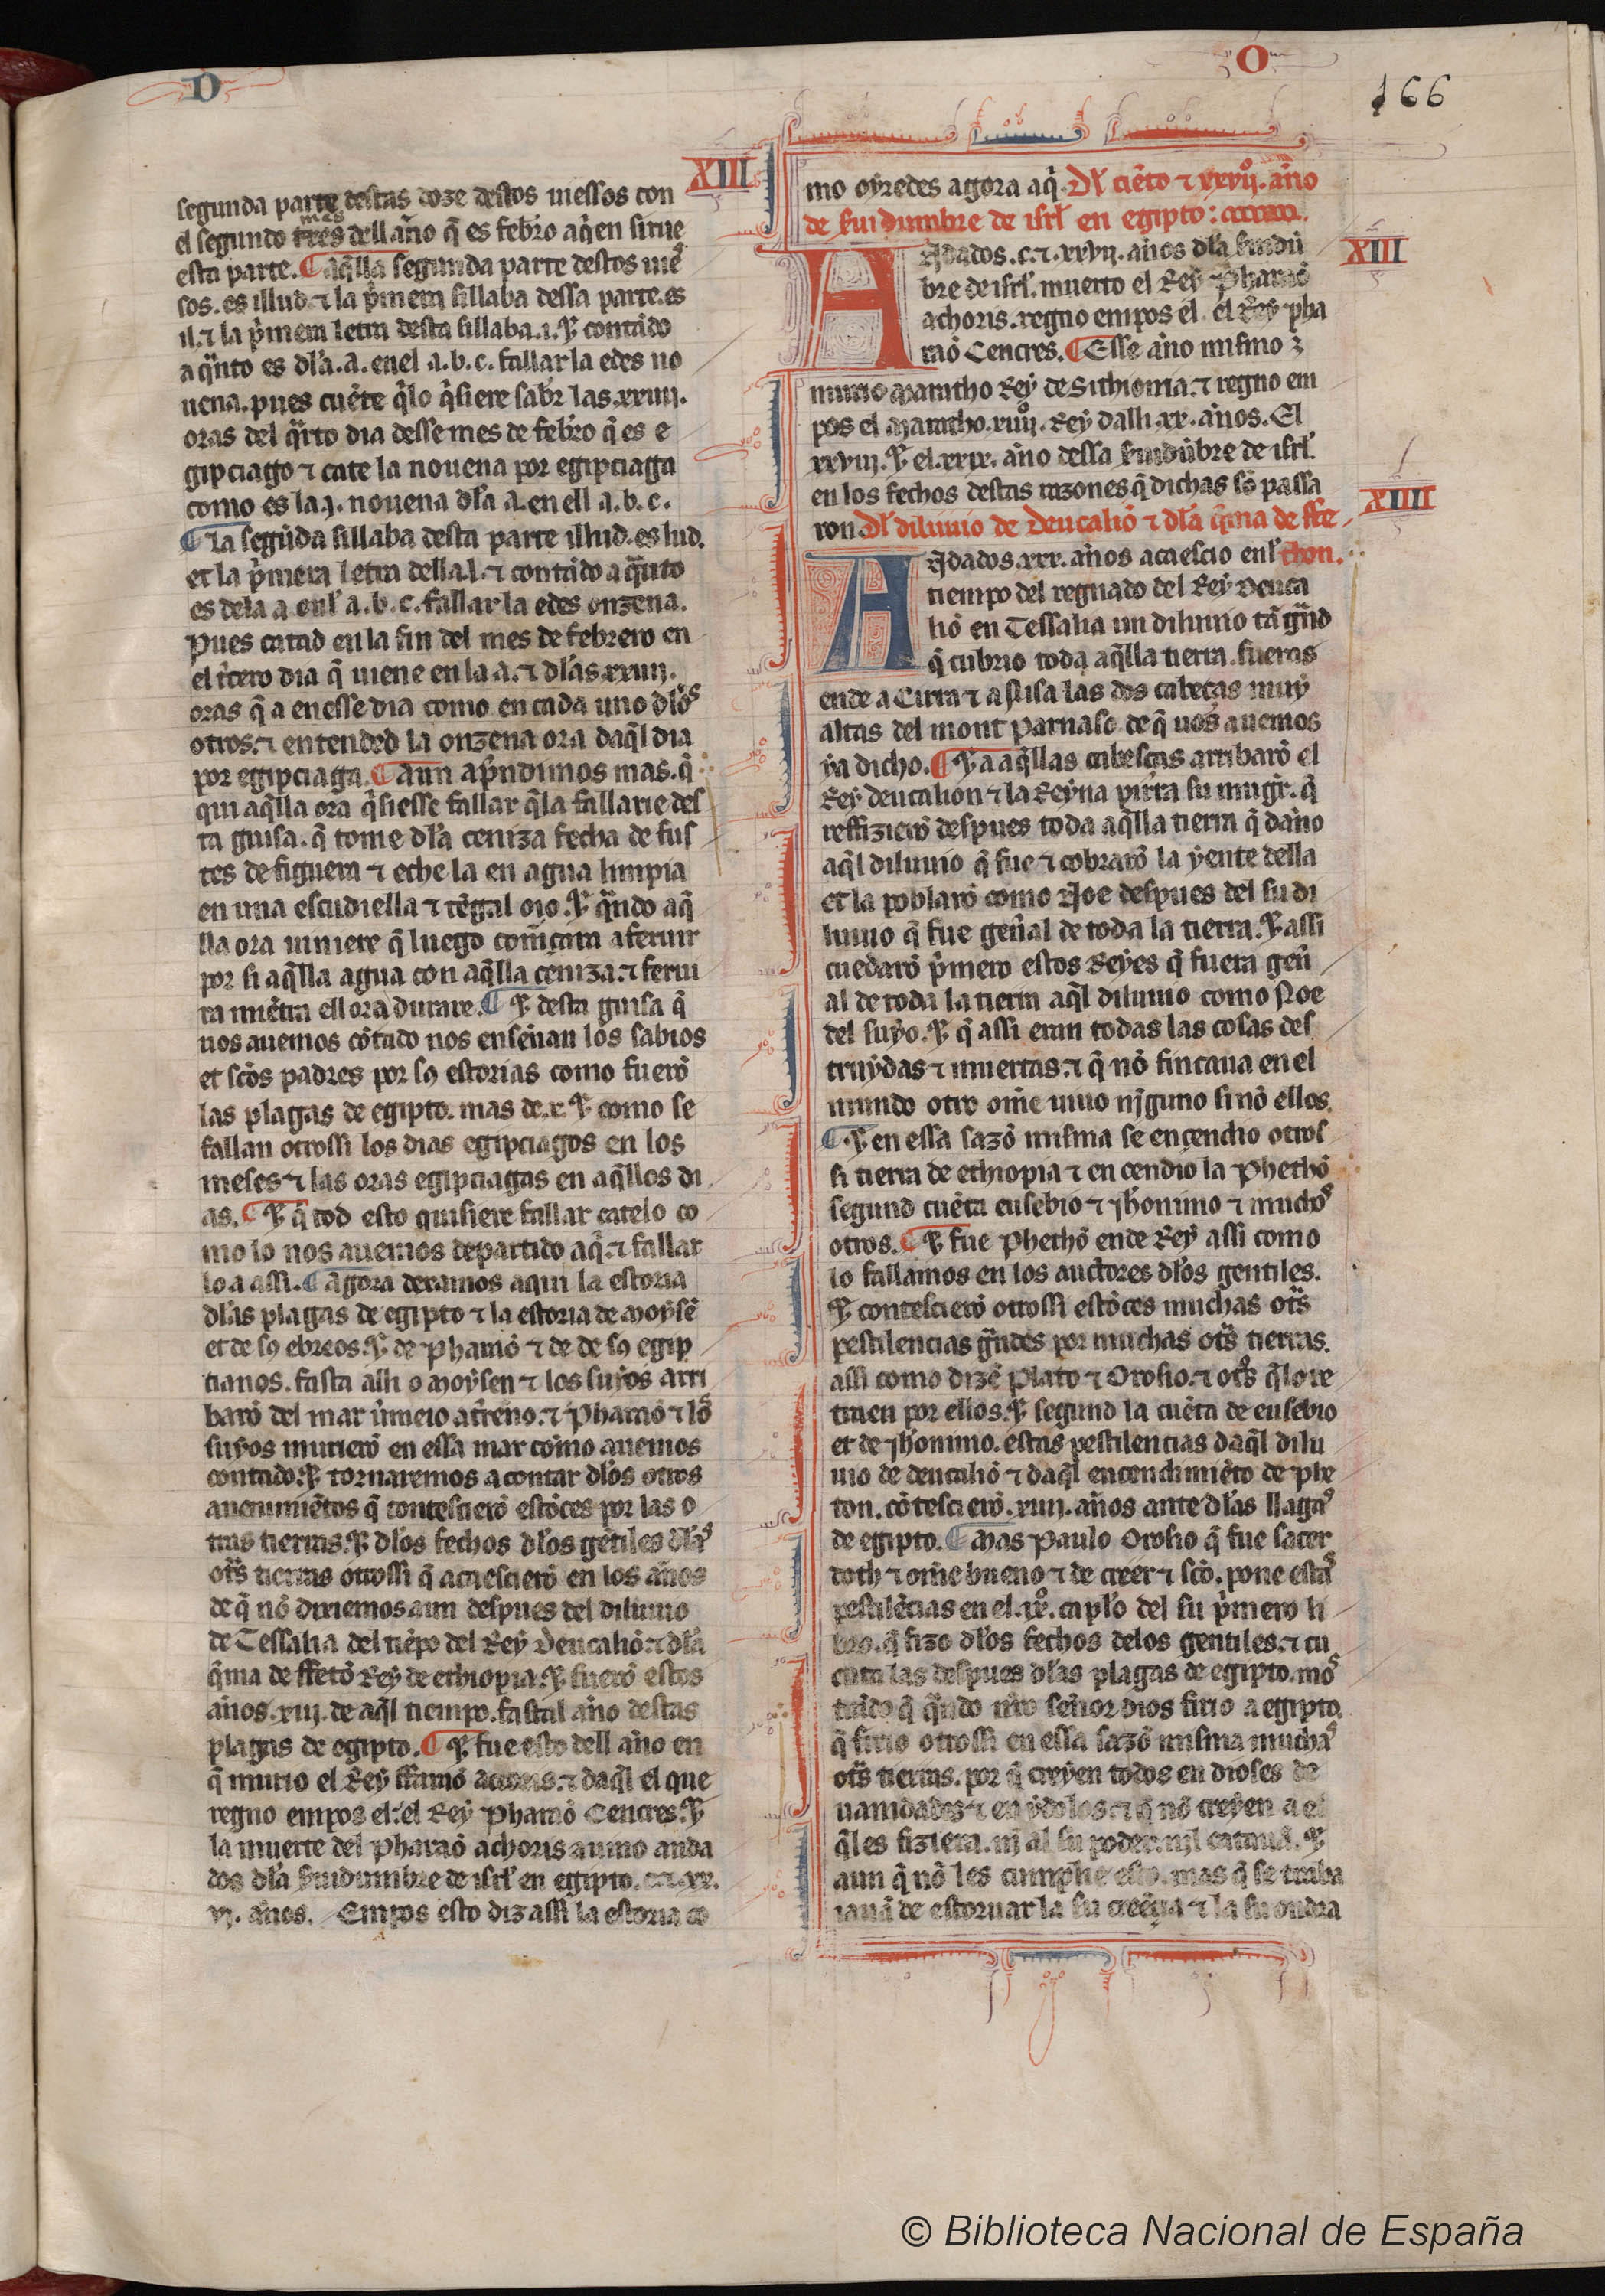 D
O
166
XIII
segunda parte destas doze destos uiessos con
el segundo tres mes dell año q̃ es febr̃o aq̃ en sirue
esta parte. ¶ aq̃lla segunda parte destos uiẽ
sos. es illud. ⁊ la p̃mera sillaba dessa parte. es
il. ⁊ la p̃mera letra desta sillaba .i. ⁊ contãdo
a q̃nto es dl̃a .a. en el .a.b.c. fallar la edes no
uena. pues cuẽte q̃ lo q̃siere sab̃r las .xxiiij.
oras del q̃rto dia desse mes de febr̃o q̃ es e
gipciago ⁊ cate la nouena por egipciaga
como es la .j. nouena dl̃a a. en ell a.b.c.
¶ La segũda sillaba desta parte illud. es lud.
et la p̃mera letra della .l. ⁊ contãdo a q̃nto
es de la a. enl̃ a.b.c. fallar la edes onzena.
Pues catad en la fin del mes de febrero en
el t̃cero dia q̃ uiene en la .a. ⁊ dl̃as .xxiiij.
oras q̃ a en esse dia como en cada uno dl̃os
otros. ⁊ entended la onzena ora daq̃l dia
por egipciaga. ¶ aun ap̃ndimos mas. q̃
qui aq̃lla ora q̃siesse fallar q̃ la fallarie des
ta guisa. q̃ tome dl̃a ceniza fecha de fus
tes de figuera ⁊ eche la en agua limpia
en una escudiella ⁊ tẽgal oio. ⁊ q̃ndo aq̃
lla ora uiniere q̃ luego com̃çara a feruir
por si aq̃lla agua con aq̃lla ceniza. ⁊ ferui
ra miẽtra ell ora durare. ¶ ⁊ desta guisa q̃
nos auemos cõtado nos enseñan los sabios
et sc̃os padres por sꝯ estorias como fuerõ
las plagas de egipto. mas de .x. ⁊ como se
fallan otrossi los dias egipciagos en los
meses ⁊ las oras egipciagas en aq̃llos di
as. ¶ ⁊ q̃ tod esto quisiere fallar catelo co
mo lo nos auemos departido aq̃. ⁊ fallar
lo a assi. ¶ agora dexamos aqui la estoria
dl̃as plagas de egipto ⁊ la estoria de Moysẽ
et de sꝯ ebreos. ⁊ de pharaõ ⁊ de de sꝯ egip
cianos. fasta alli o Moysen ⁊ los suyos arri
barõ del mar ũmeio a t̃reno. ⁊ Pharaõ ⁊ lõs
suyos murierõ en essa mar como auemos
contado. ⁊ tornaremos a contar dl̃os otros
auenimiẽtos q̃ contescierõ estõces por las o
tras tierras. ⁊ dl̃os fechos dl̃os gẽtiles dl̃as
ot̃s tierras otrossi q̃ acaescierõ en los años
de q̃ nõ dixiemos aun despues del diluuio
de Tessalia del tiẽpo del Rey Deucaliõ. ⁊ dl̃a
q̃ma de ffetõ Rey de ethiopia. ⁊ fuerõ estos
años .xiij. de aq̃l tiempo. fastal año destas
plagas de egipto. ¶ ⁊ fue esto dell año en
q̃ murio el Rey ffaraõ acoris. ⁊ daq̃l el que
regno empos el: el Rey Pharaõ Cencres. ⁊
la muerte del Pharaõ achoris auino anda
dos dl̃a s̃uidumbre de isrl̃ en egipto. c. ⁊ .xx.
vj. años. Empos esto diz assi la estoria co
mo oyredes agora aq̃. Dl̃ ciẽto ⁊ xxvijº. año
de s̃uidumbre de isrl̃ en egipto:
XIII
ANdados .c. ⁊ .xxvij. años dl̃a s̃uidũ
bre de isrl̃. muerto el Rey Pharaõ
achoris. regno empos el. el Rey pha
raõ Cencres. ¶ Esse año mismo
murio Maratho Rey de Sithionia. ⁊ regno em
pos el Maratho .xiiijº. Rey dalli .xx. años. El
xxviij. ⁊ el .xxix. año dessa s̃uidũbre de isrl̃.
en los fechos destas razones q̃ dichas sõ passa
XIIII
ron. Dl̃ diluuio de Deucaliõ ⁊ dl̃a q̃ma de ffe
ANdados .xxx. años acaescio enl̃ thon.
tiempo del regnado del Rey Deuca
liõ en Tessalia un diluuio tã g̃nd
q̃ cubrio toda aq̃lla tierra. fueras
ende a Cirra ⁊ a Nisa las dos cabeças muy
altas del mont Parnaso de q̃ uos auemos
ya dicho. ¶ ⁊ a aq̃llas cabesças arribarõ el
Rey deucalion ⁊ la Reyna pirra su mug̃r. q̃
reffizierõ despues toda aq̃lla tierra q̃ daño
aq̃l diluuio q̃ fue ⁊ cobrarõ la yente della
et la poblarõ como Noe despues del su di
luuio q̃ fue geñal de toda la tierra. ⁊ assi
cuedarõ p̃mero estos Reyes q̃ fuera geñ
al de toda la tierra aq̃l diluuio como Noe
del suyo. ⁊ q̃ assi eran todas las cosas des
truydas ⁊ muertas. ⁊ q̃ nõ fincaua en el
mundo otro om̃e uiuo nĩguno sinõ ellos.
¶ ⁊ en essa sazõ misma se encendio otros
si tierra de ethiopia ⁊ encendio la Phethõ
segund cuẽta eusebio ⁊ Jheronimo ⁊ muchos
otros. ¶ ⁊ fue Phethõ ende Rey assi como
lo fallamos en los auctores dl̃os gentiles.
⁊ contescierõ otrossi estõces muchas ot̃s
pestilencias g̃ndes por muchas ot̃s tierras.
assi como dizẽ Plato ⁊ Orosio. ⁊ ot̃s q̃ lo re
traen por ellos. ⁊ segund la cuẽta de eusebio
et de Jheronimo. estas pestilencias daq̃l dilu
uio de deucaliõ ⁊ daq̃l encendimiẽto de phe
ton. cõtescierõ .xiiij. años ante dl̃as llagas
de egipto. ¶ Mas Paulo Orosio q̃ fue sacer
doth ⁊ om̃e bueno ⁊ de creer ⁊ sc̃o. pone estas
pestilẽcias en el .ixº. capl̃o del su p̃mero li
bro. q̃ fizo dl̃os fechos delos gentiles. ⁊ cu
enta las despues dl̃as plagas de egipto. mos
trãdo q̃ q̃ndo nr̃o señor dios firio a egipto.
q̃ firio otrossi en essa sazõ misma muchas
ot̃s tierras. por q̃ creyen todos en dioses de
uanidades ⁊ en ydolos. ⁊ q̃ nõ creyen a el
q̃ les fiziera. nj al su poder. njl catauã. ⁊
aun q̃ nõ les cumplie esto. mas q̃ se traba
iauã de estoruar la su creẽça ⁊ la su ondra
© Biblioteca Nacional de España